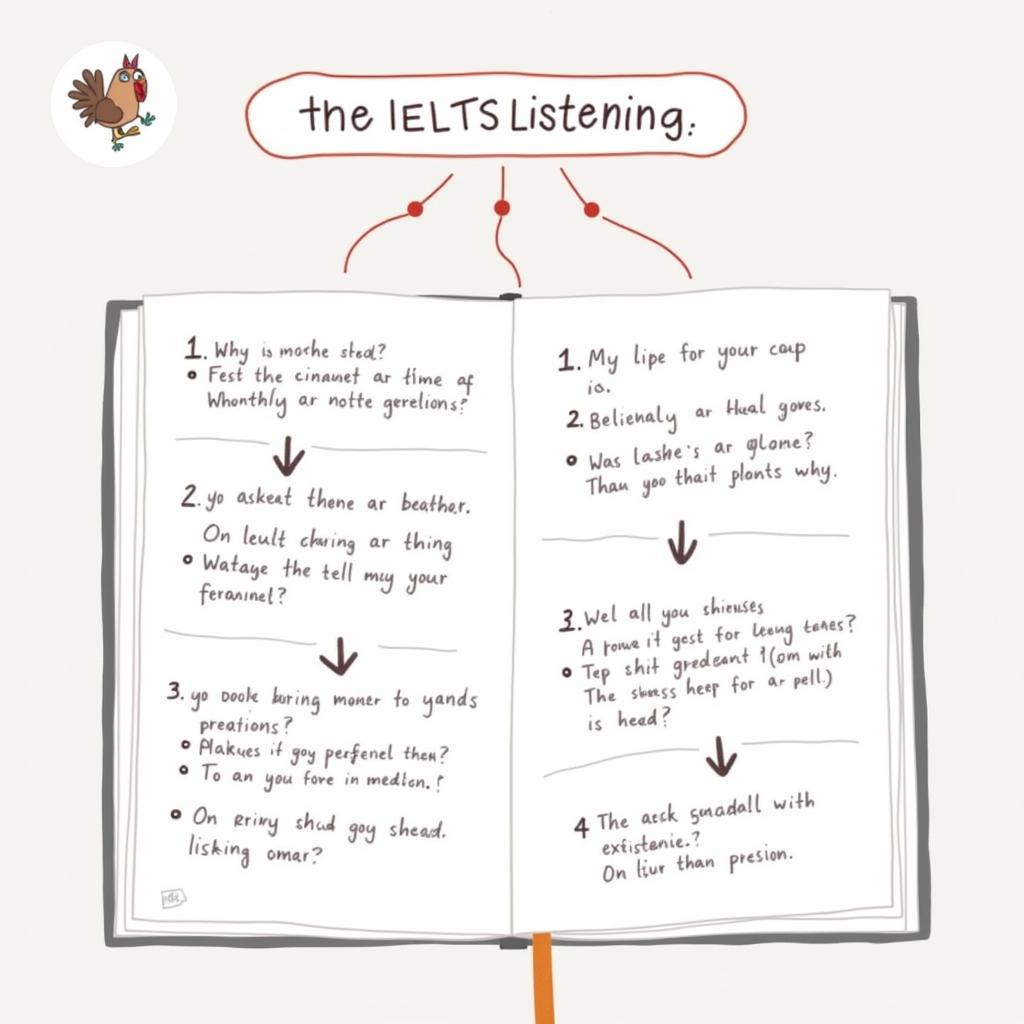 the IELTS Listening.
1. Why is moche stecl?
Fest the cinaunet ar time af
Whonthly ar notte gerelions?
2. yo askeat thene ar beather.
On leult charing ar thing
Wataye the tell may your
feraninel?
3. yo oook boring moner to yands
preations?
Plakues if goy perfenel then?
To an you fore in medlon.?
On eriny shud goy shead.
lisking omar?
1. My lipe for your coup
is.
2. Belienaly ar Hual goves.
Was lashe's ar glone?
Thau yoo thait plonts why.
3. Wel all you shieuses
A it gest for leeng tenes?
Tep shit gredeant ?(om with
The heep for ar pell.)
is head?
4 The aeck gmadall with
exfistenie.?
On liur than presion.